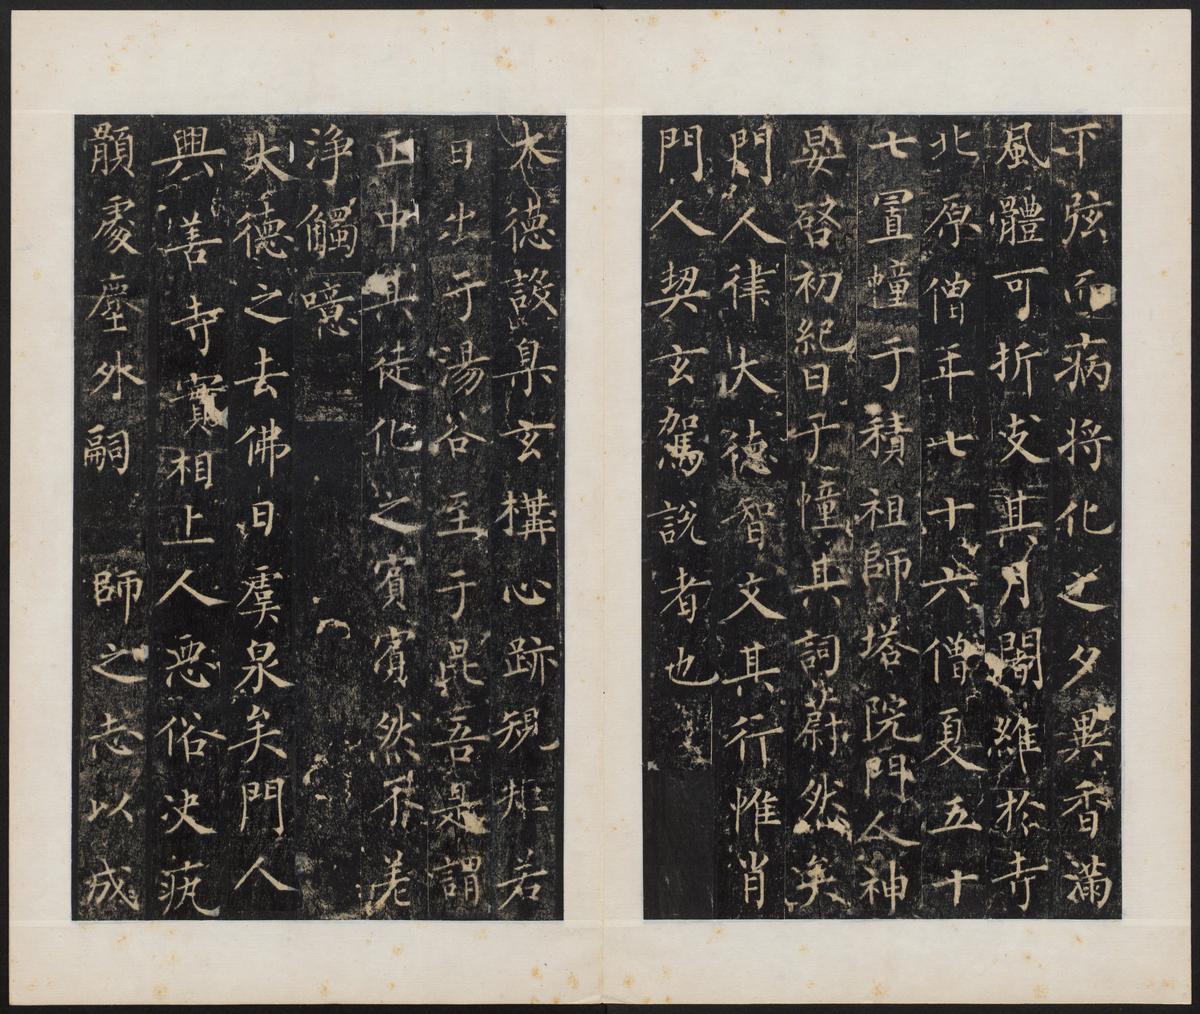 下弦而病将化之夕異香滿
風體可折支其月闍維於寺
北原僧年七十六僧夏五十
七置幢于積祖師塔院門人神
晏啓初紀日于幢其詞蔚然矣
門人律大德智文其行惟肖
門人契玄駕說者也
大德設臬玄構心跡規矩若
日出于湯谷至于昆吾是謂
正中其徒化之賓賓然不差
淨觸噫
大德之去佛日虞泉矣門人
興善寺實相上人惡俗决疣
顥處塵外嗣師之志以成